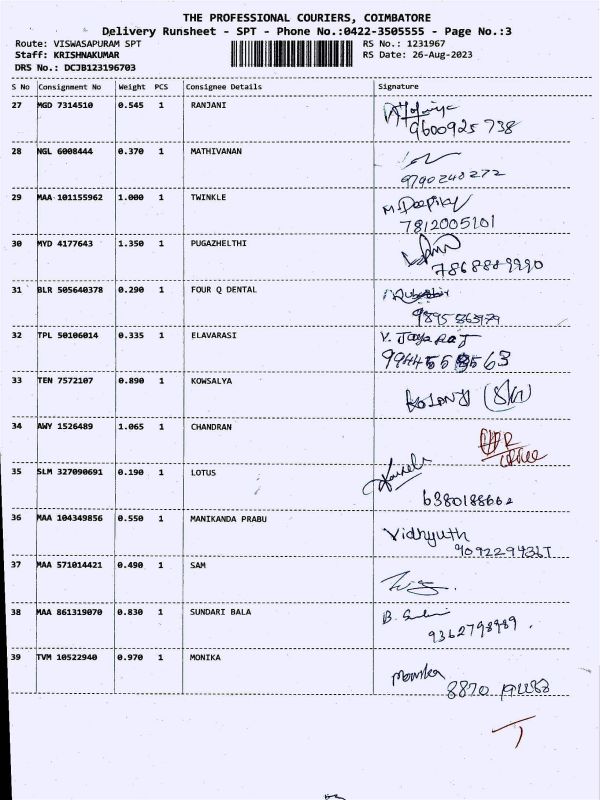 THE PROFESSIONAL COURIERS, COIMBATORE
Delivery Runsheet - SPT - Phone No.:0422-3505555 - Page No.:3
Route: VISWASAPURAM SPT RS No.: 1231967
Staff: KRISHNAKUMAR RS Date: 26-Aug-2023
DRS No.: DCJB123196703
S No Consignment No Weight PCS Consignee Details Signature
27 MGD 7314510 0.545 1 RANJANI
9600925738
28 NGL 6008444 0.370 1 MATHIVANAN
9790240272
29 MAA 101155962 1.000 1 TWINKLE M. Deepika
7812005101
30 MYD 4177643 1.350 1 PUGAZHELTHI
7868889990
31 BLR 505640378 0.290 1 FOUR Q DENTAL
32 TPL 50106014 0.335 1 ELAVARASI V. JayaRaj
33 TEN 7572107 0.890 1 KOWSALYA
34 AWY 1526489 1.065 1 CHANDRAN
office
35 SLM 327090691 0.190 1 LOTUS
6380188662
36 MAA 104349856 0.550 1 MANIKANDA PRABU Vidhyuth
37 MAA 571014421 0.490 1 SAM
38 MAA 861319070 0.830 1 SUNDARI BALA B.
9362798989.
39 TVM 10522940 0.970 1 MONIKA Monika
8870